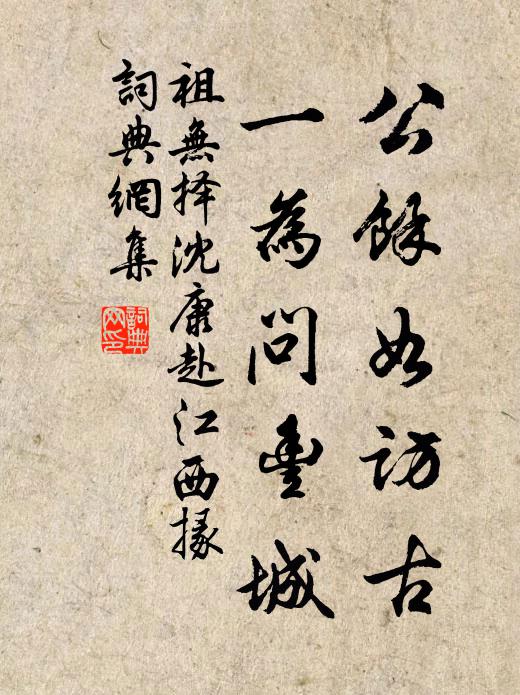 公餘如訪古
一為問豐城
祖無择沈康赴江西掾
詞典網集
詞典網印